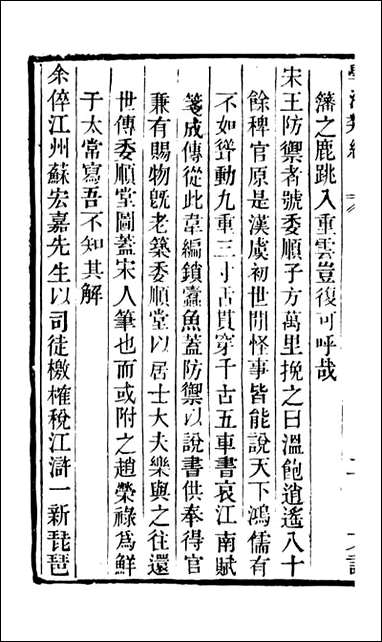 學海類編
籓之鹿跳入重雲豈復可呼哉
宋王防禦者號委順子方萬里挽之曰溫飽逍遙八十
餘稗官原是漢虞初世間怪事皆能說天下鴻儒有
不如聳動九重三寸舌貫穿千古五車書哀江南賦
箋成傳從此韋編鎖蠹魚蓋防禦以說書供奉得官
兼有賜物旣老築委順堂以居士大夫樂與之往還
世傳委順堂圖蓋宋人筆也而或附之趙榮祿爲鮮
于太常寫吾不知其解
余倅江州蘇宏嘉先生以司徒檄榷稅江滸一新琵琶